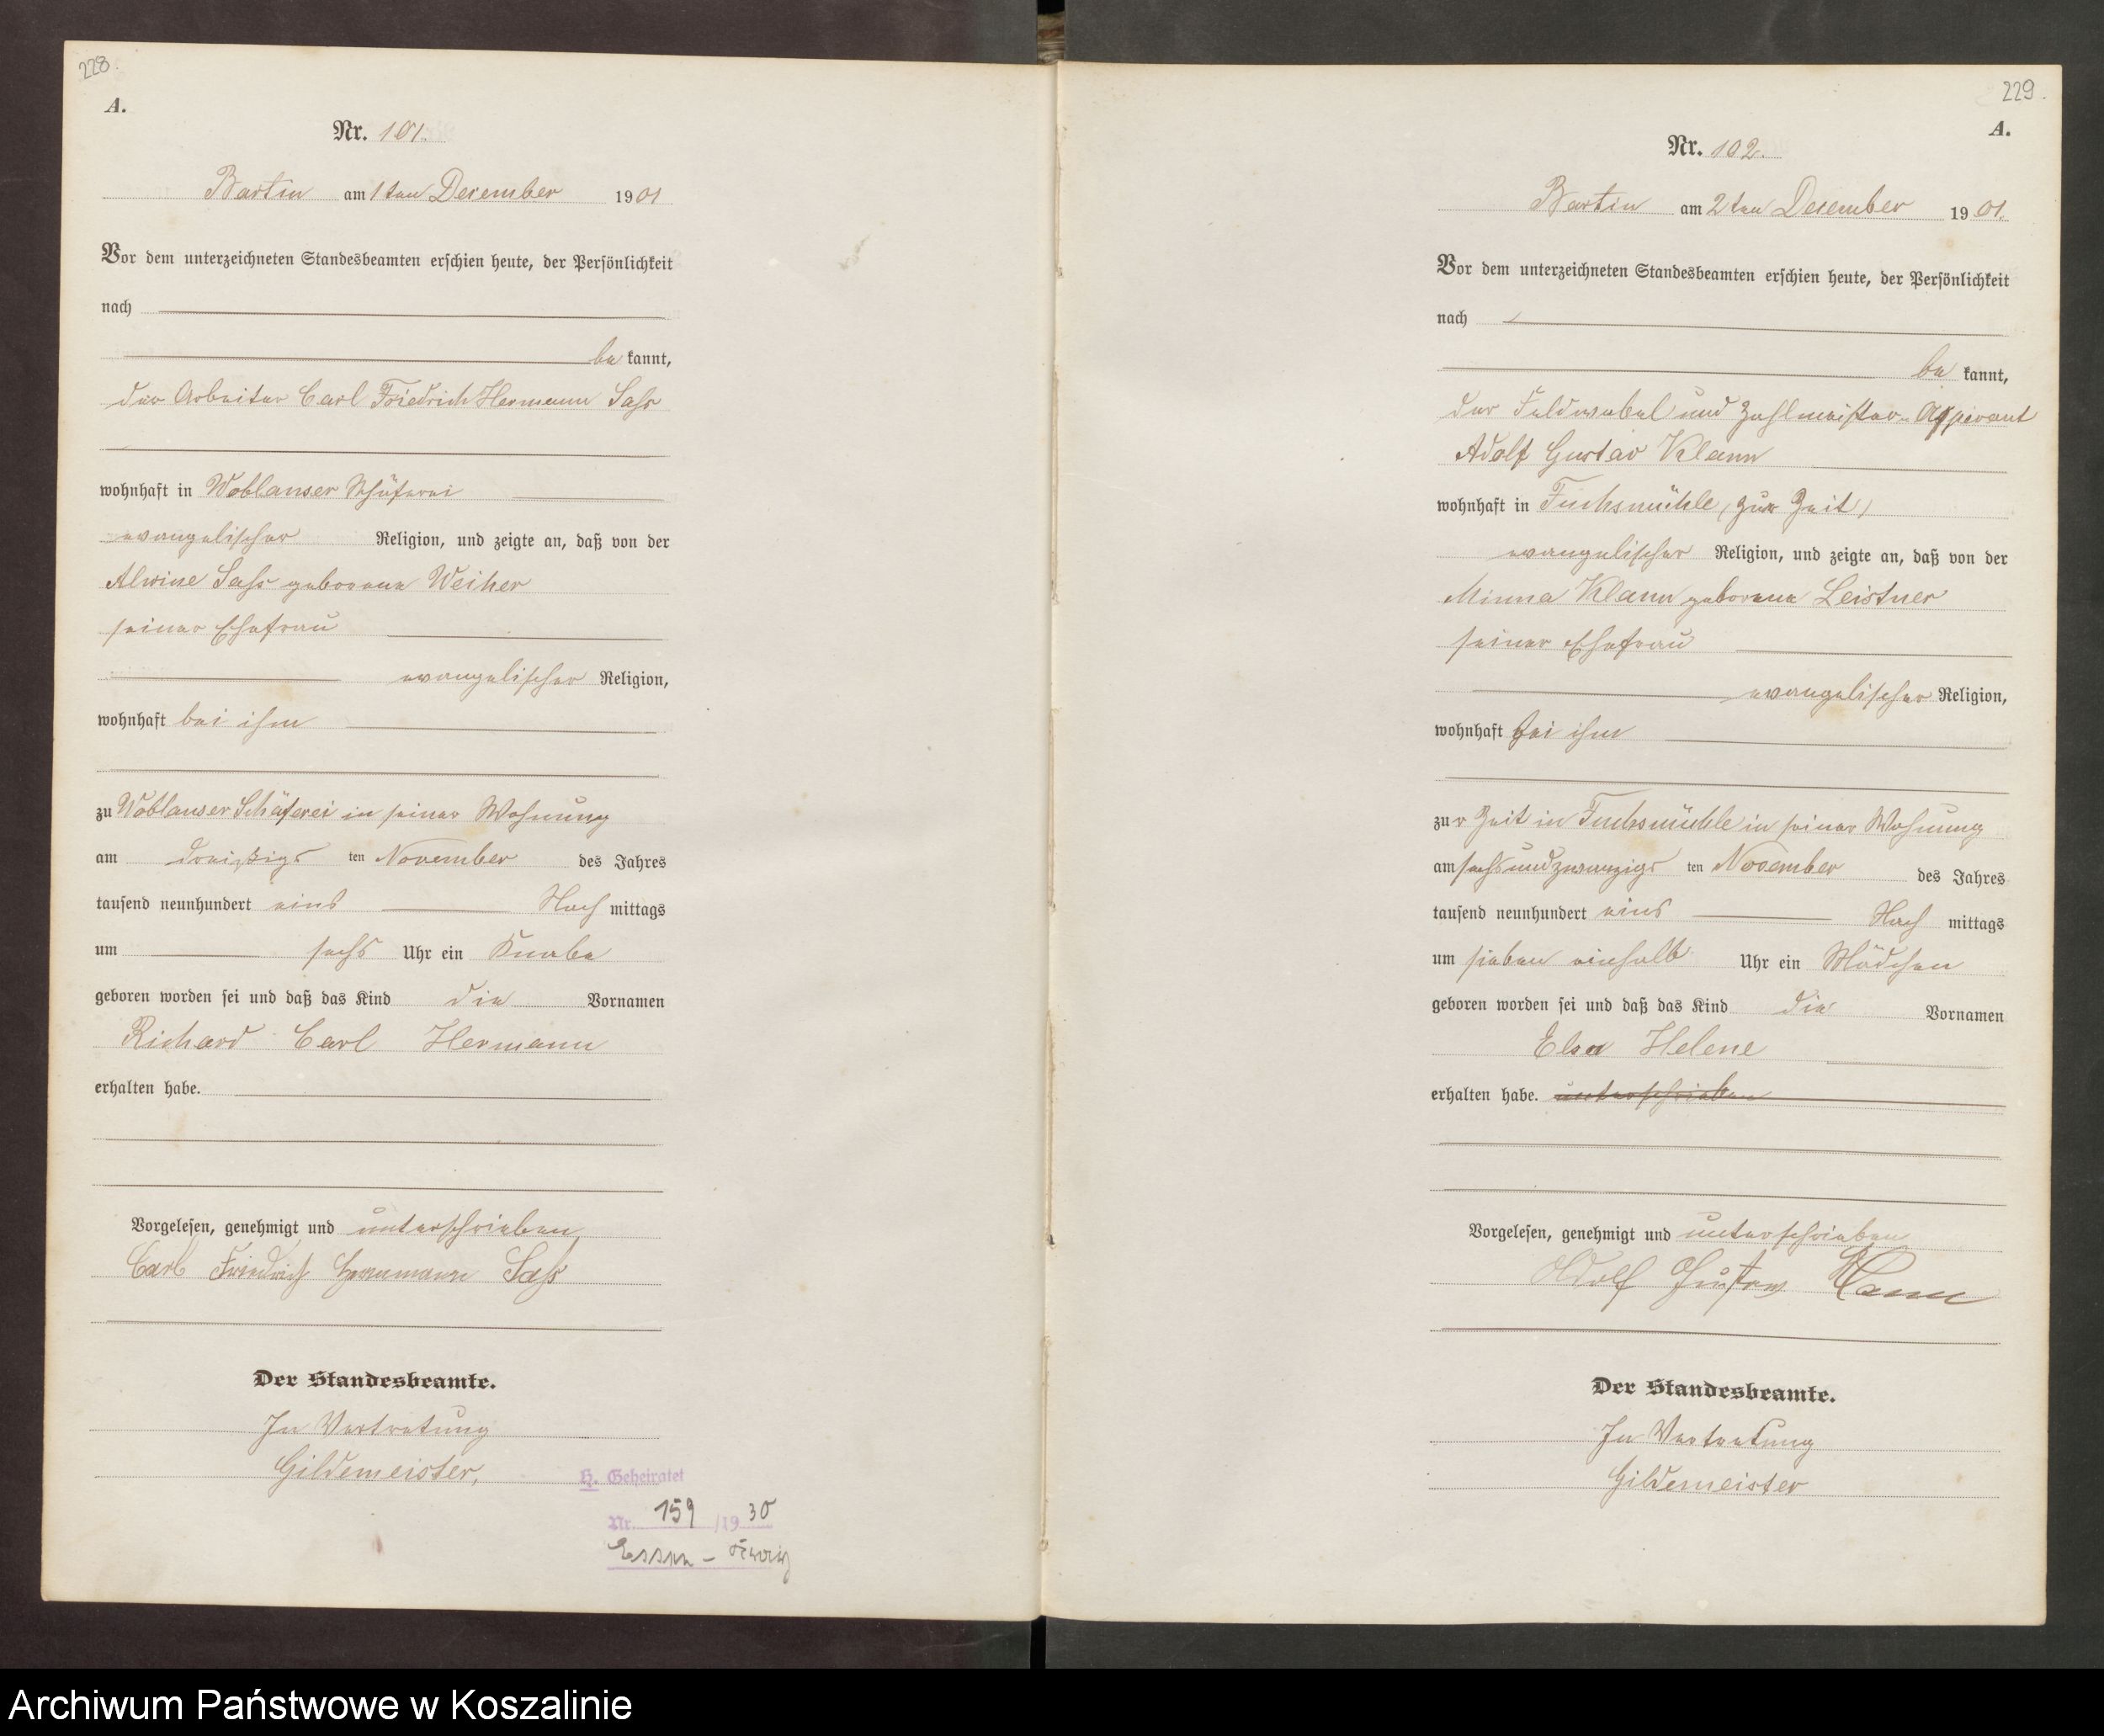 228.
A.
Nr. 101.
Bartin am 1ten Dezember 1901
Vor dem unterzeichneten Standesbeamten erschien heute, der Persönlichkeit
nach
be kannt,
der Arbeiter Carl Friedrich Hermann Sass
wohnhaft in Woblanser Schäferei
evangelischer Religion, und zeigte an, daß von der
Alwine Sass geborene Weiher
seiner Ehefrau
evangelischer Religion,
wohnhaft bei ihm
zu Woblanser Schäferei in seiner Wohnung
am dreißigs ten November des Jahres
tausend neunhundert eins Nach mittags
um sechs Uhr ein Knabe
geboren worden sei und daß das Kind die Vornamen
Richard Carl Hermann
erhalten habe.
Vorgelesen, genehmigt und unterschrieben
Carl Friedrich Herrmann Sass
Der Standesbeamte.
In Vertretung
Gildemeister,
H. Geheiratet
Nr. 159 /1930
Essen -
229.
A.
Nr. 102.
Bartin am 2ten Dezember 1901.
Vor dem unterzeichneten Standesbeamten erschien heute, der Persönlichkeit
nach
be kannt,
der Feldwebel und Zahlmeister-Aspirant
Adolf Gustav Klann
wohnhaft in Fuchsmühle, (zur Zeit)
evangelischer Religion, und zeigte an, daß von der
Minna Klann geborene Leistner
seiner Ehefrau
evangelischer Religion,
wohnhaft bei ihm
zur Zeit in Fuchsmühle in seiner Wohnung
am sechsundzwanzigs ten November des Jahres
tausend neunhundert eins Nach mittags
um sieben einhalb Uhr ein Mädchen
geboren worden sei und daß das Kind die Vornamen
Elsa Helene
erhalten habe. unterschrieben
Vorgelesen, genehmigt und unterschrieben
Adolf Gustav Klann
Der Standesbeamte.
In Vertretung
Gildemeister
Archiwum Państwowe w Koszalinie